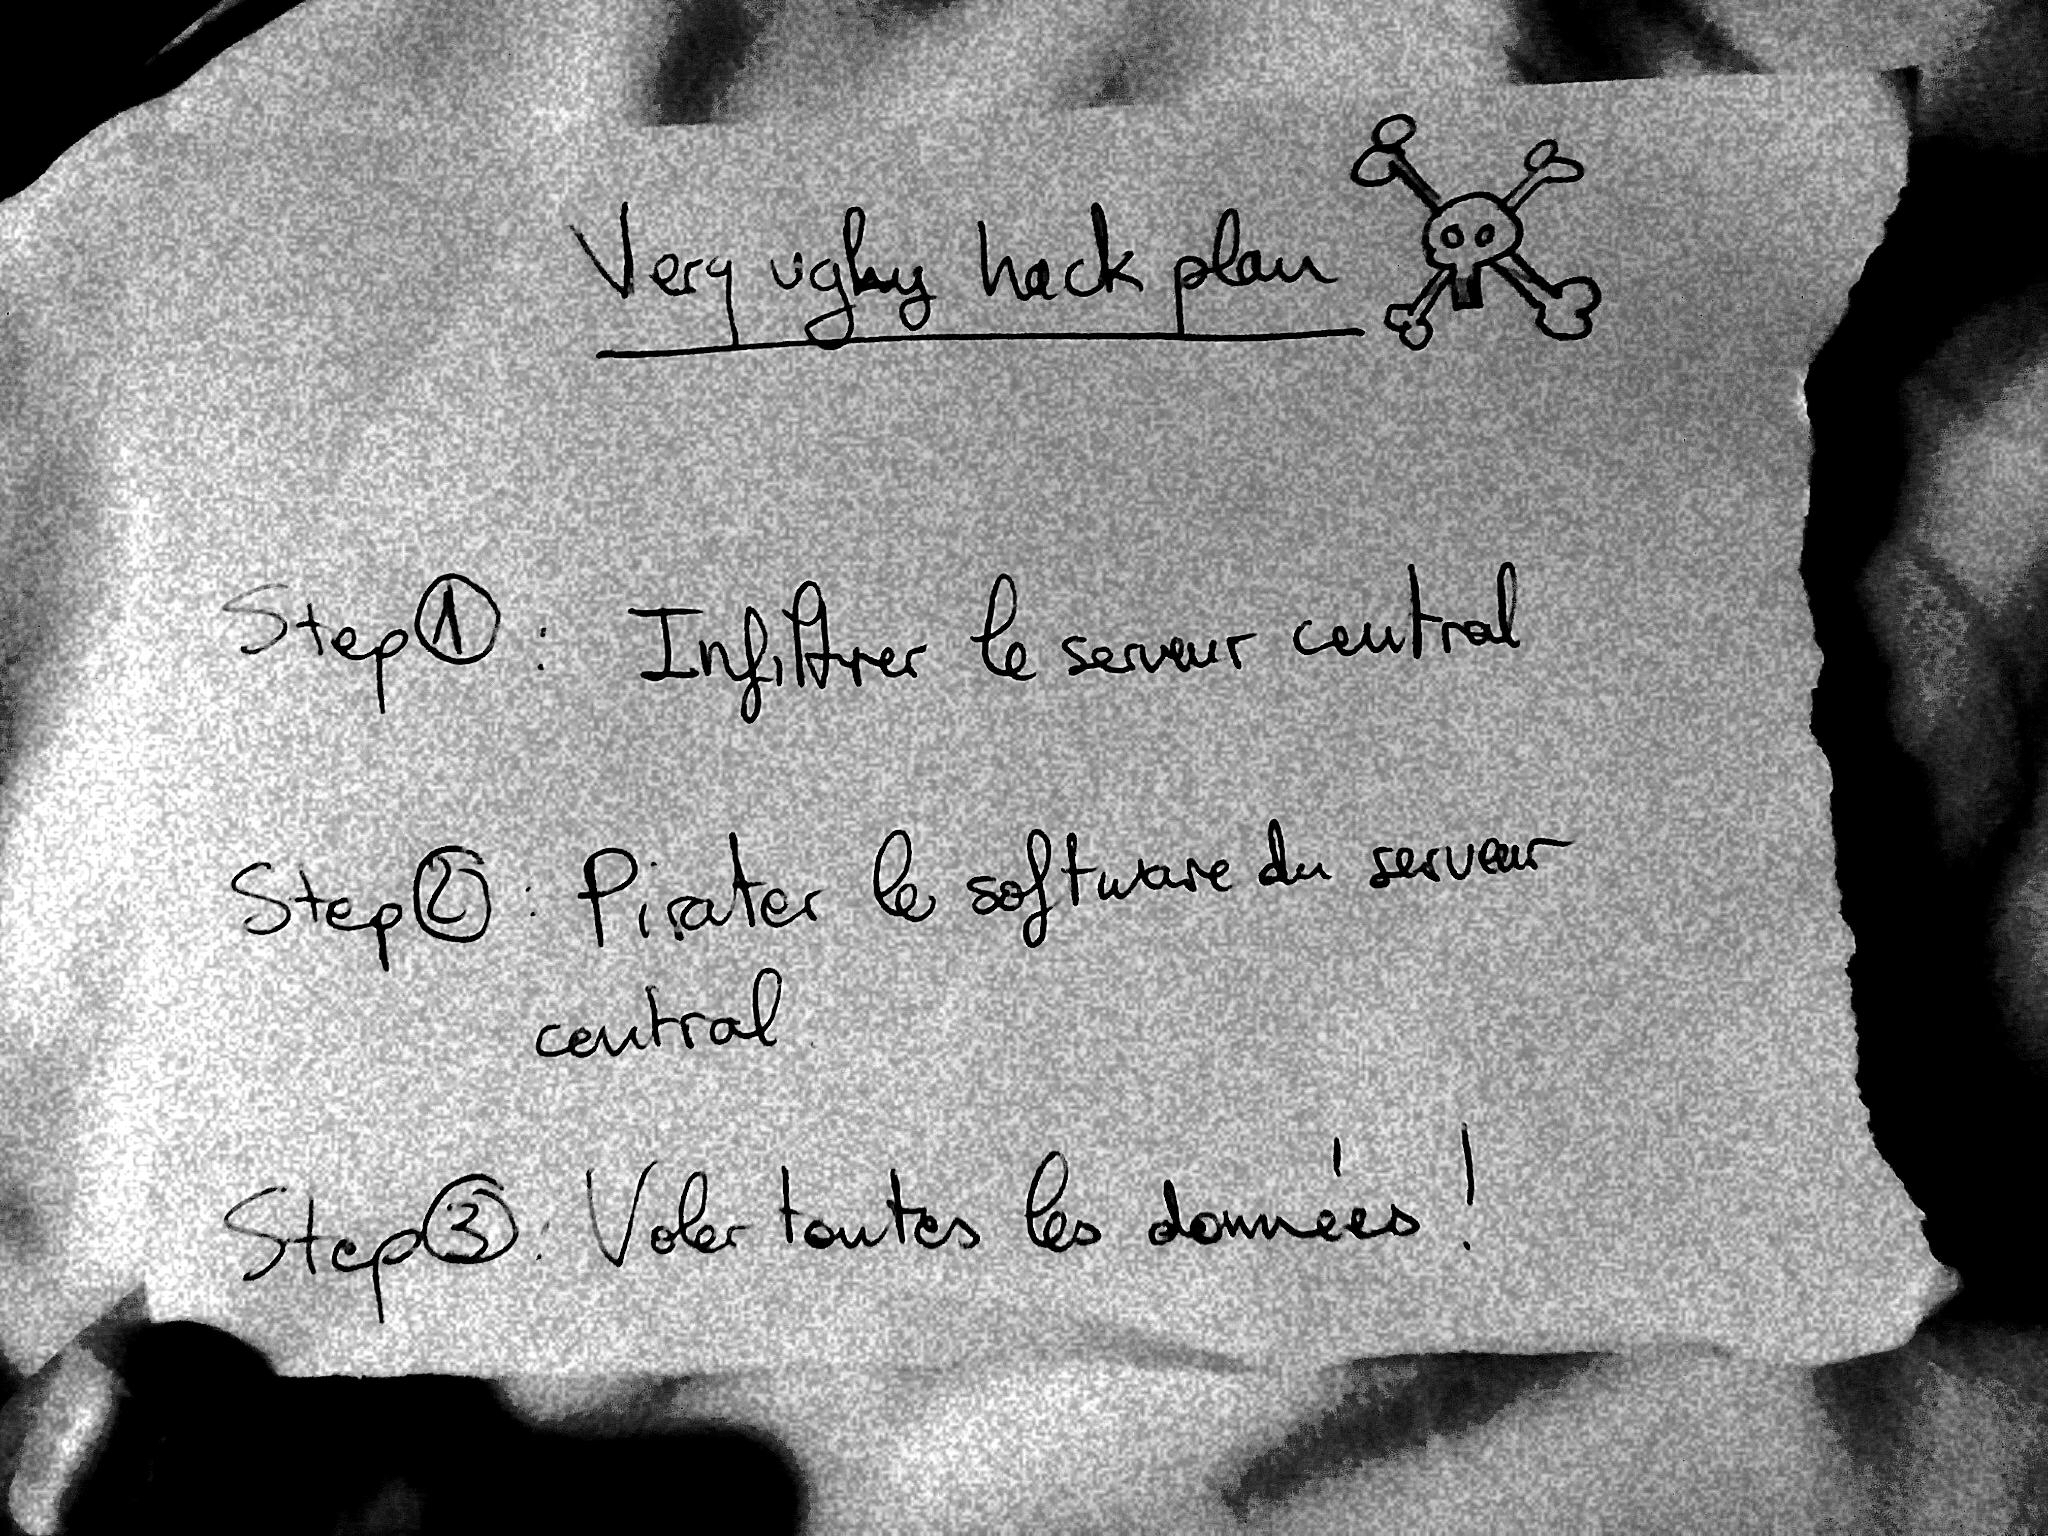 Very ugly hack plan
Step 1 : Infiltrer le serveur central
Step 2 : Pirater le software du serveur
central
Step 3 : Voler toutes les données !